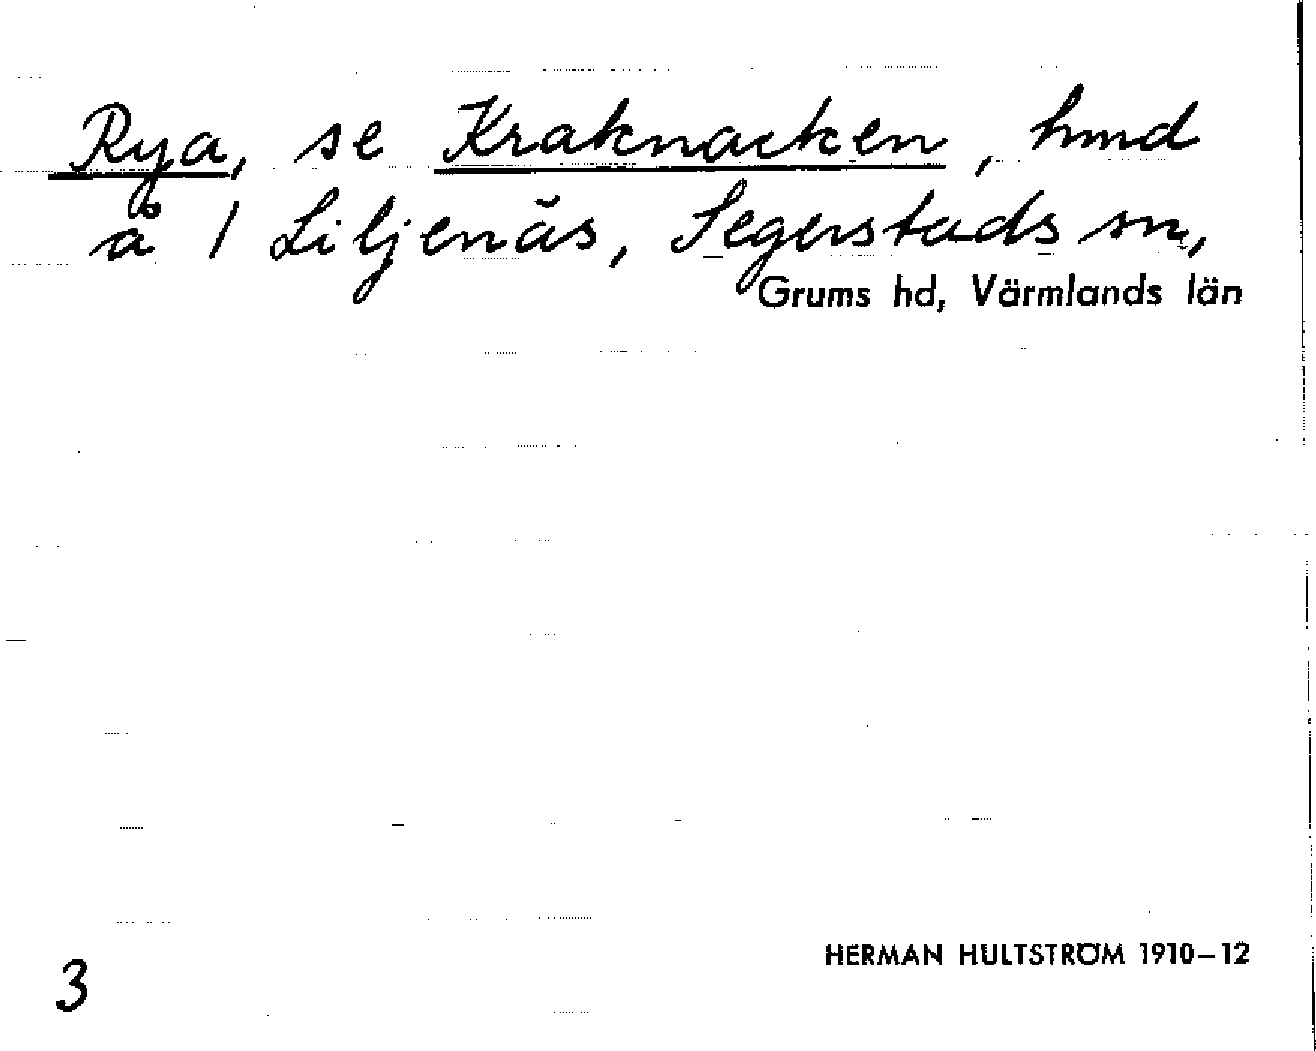 Rya, se Kraknacken, hmd
å 1 Liljenäs, Segerstads sn,
Grums hd, Värmlands län
HERMAN HULTSTRÖM 1910–12
3